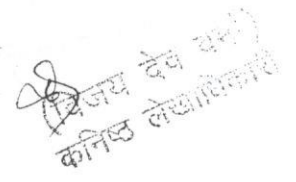 विजय देव वर्मा
कनिष्ठ लेखाधिकारी